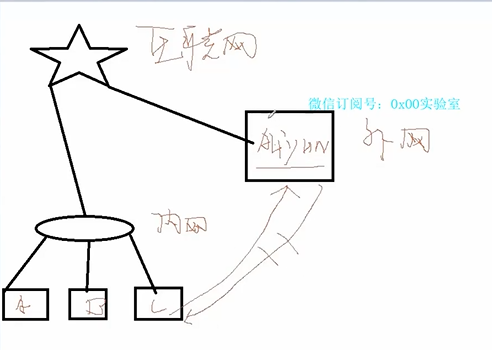 互联网
微信订阅号：0x00实验室
AliyUN
外网
内网
A
B
C